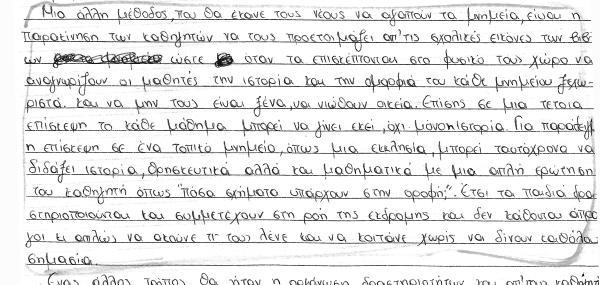 Μια άλλη μέθοδος, που θα έκανε τους νέους να αγαπούν τα μνημεία, είναι η
παρακίνηση των καθηγητών να τους προετοιμάζει απ'τις σχολικές εικόνες των βιβλί
ων ώστε όταν τα επισκέπτονται στο φυσικό τους χώρο να
αναγνωρίζουν οι μαθητές την ιστορία και την ομορφιά του κάθε μνημείου ξεχω
ριστά, και να μην τους είναι ξένα, να νιώθουν οικεία. Επίσης σε μια τέτοια
επίσκεψη το κάθε μάθημα μπορεί να γίνει εκεί, όχι μόνο ιστορία. Για παράδειγμα
η επίσκεψη σε ένα τοπικό μνημείο, όπως μια εκκλησία, μπορεί ταυτόχρονα να
διδάξει ιστορία, θρησκευτικά αλλά και μαθηματικά με μια απλή ερώτηση
του καθηγητή όπως "πόσα σχήματα υπάρχουν στην οροφή;". Έτσι τα παιδιά δρα
στηριοποιούνται και συμμετέχουν στη ροή της εκδρομής και δεν κάθονται άπρα
γοι κι απλώς να ακούνε τι τους λένε και να κοιτάνε χωρίς να δίνουν καθόλου
σημασία.
Ένας άλλος τρόπος θα ήταν η οργάνωση δραστηριοτήτων και απ'την